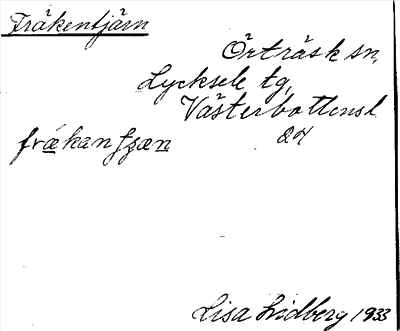 Fräkentjärn
Örträsk sn,
Lycksele tg,
Västerbottens l.
fräkanʃæn
Lisa Lidberg 1933